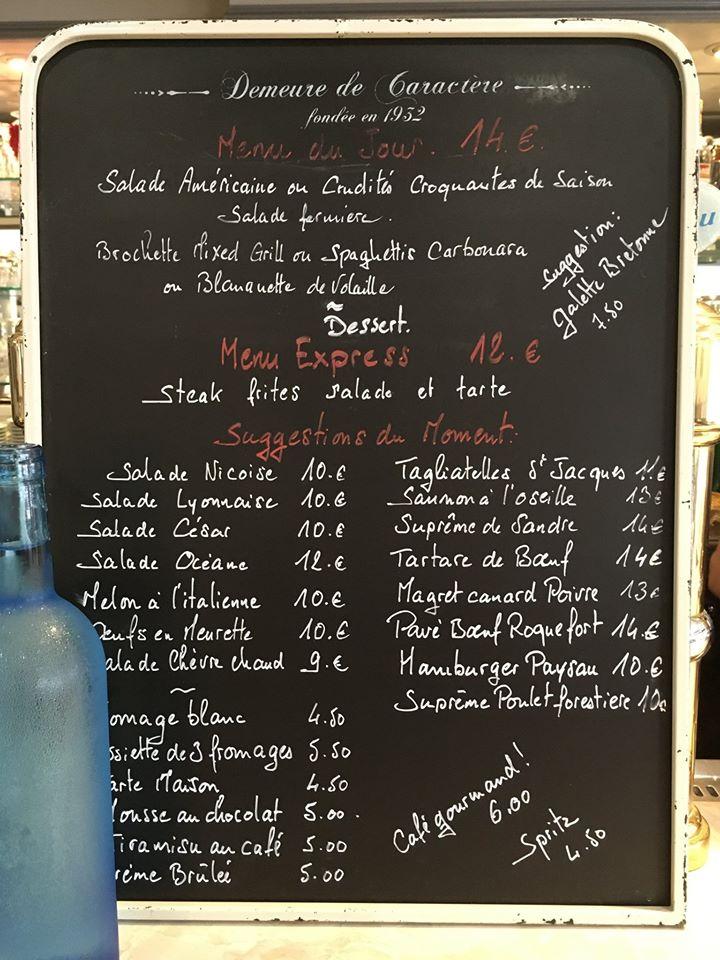 Demeure de Caractère
fondée en 1932
Menu du Jour. 14.€.
Salade Américaine ou Crudités Croquantes de Saison
Salade fermiere.
Brochette Mixed Grill ou Spaghettis Carbonara
ou Blanquette de Volaille
~
Dessert.
Suggestion:
Galette Bretonne
7.50
Menu Express 12.€
Steak frites salade et tarte
Suggestions du Moment:
Salade Nicoise 10.€
Salade Lyonnaise 10.€
Salade César 10.€
Salade Océane 12.€
Melon à l'italienne 10.€
Oeufs en Meurette 10.€
alade Chèvre chaud 9.€
~
omage blanc 4.50
ssiette de 3 fromages 5.50
arte Maison 4.50
ousse au chocolat 5.00.
Tiramisu au café 5.00
rème Brûlée 5.00
Tagliatelles St Jacques €
Saumon à l'oseille 13€
Suprême de Sandre 14€
Tartare de Bœuf 14€
Magret canard Poivre 13€
Pavé Bœuf Roquefort 14.€
Hamburger Paysan 10.€
Suprême Poulet forestiere 10€
Café gourmand!
6.00
Spritz
4.50